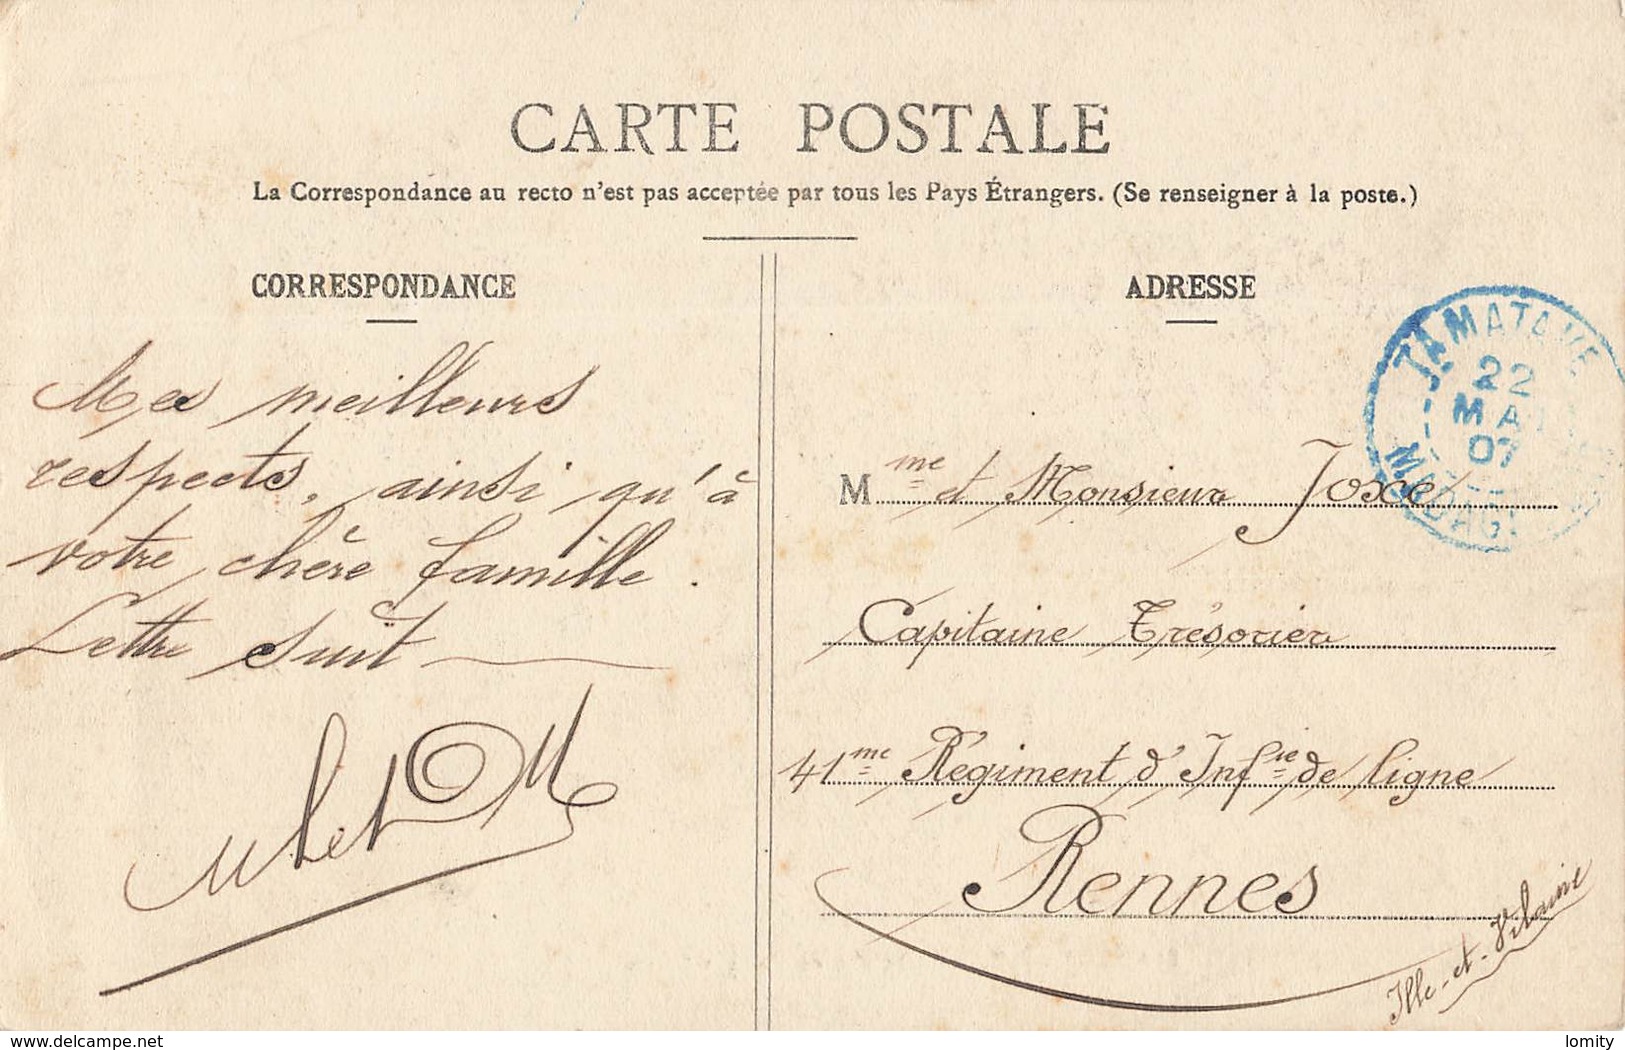 CARTE POSTALE
La Correspondance au recto n'est pas acceptée par tous les Pays Étrangers. (Se renseigner à la poste.)
CORRESPONDANCE
Mes meilleurs
respects, ainsi qu'à
votre chère famille.
Lettre suit
ADRESSE
TAMATAVE
22
MAI
07
Mme et Monsieur Joxe
Capitaine Trésorier
41me Régiment d'Infie de ligne
Rennes
Ille-et-Vilaine
delcampe.net
lomity